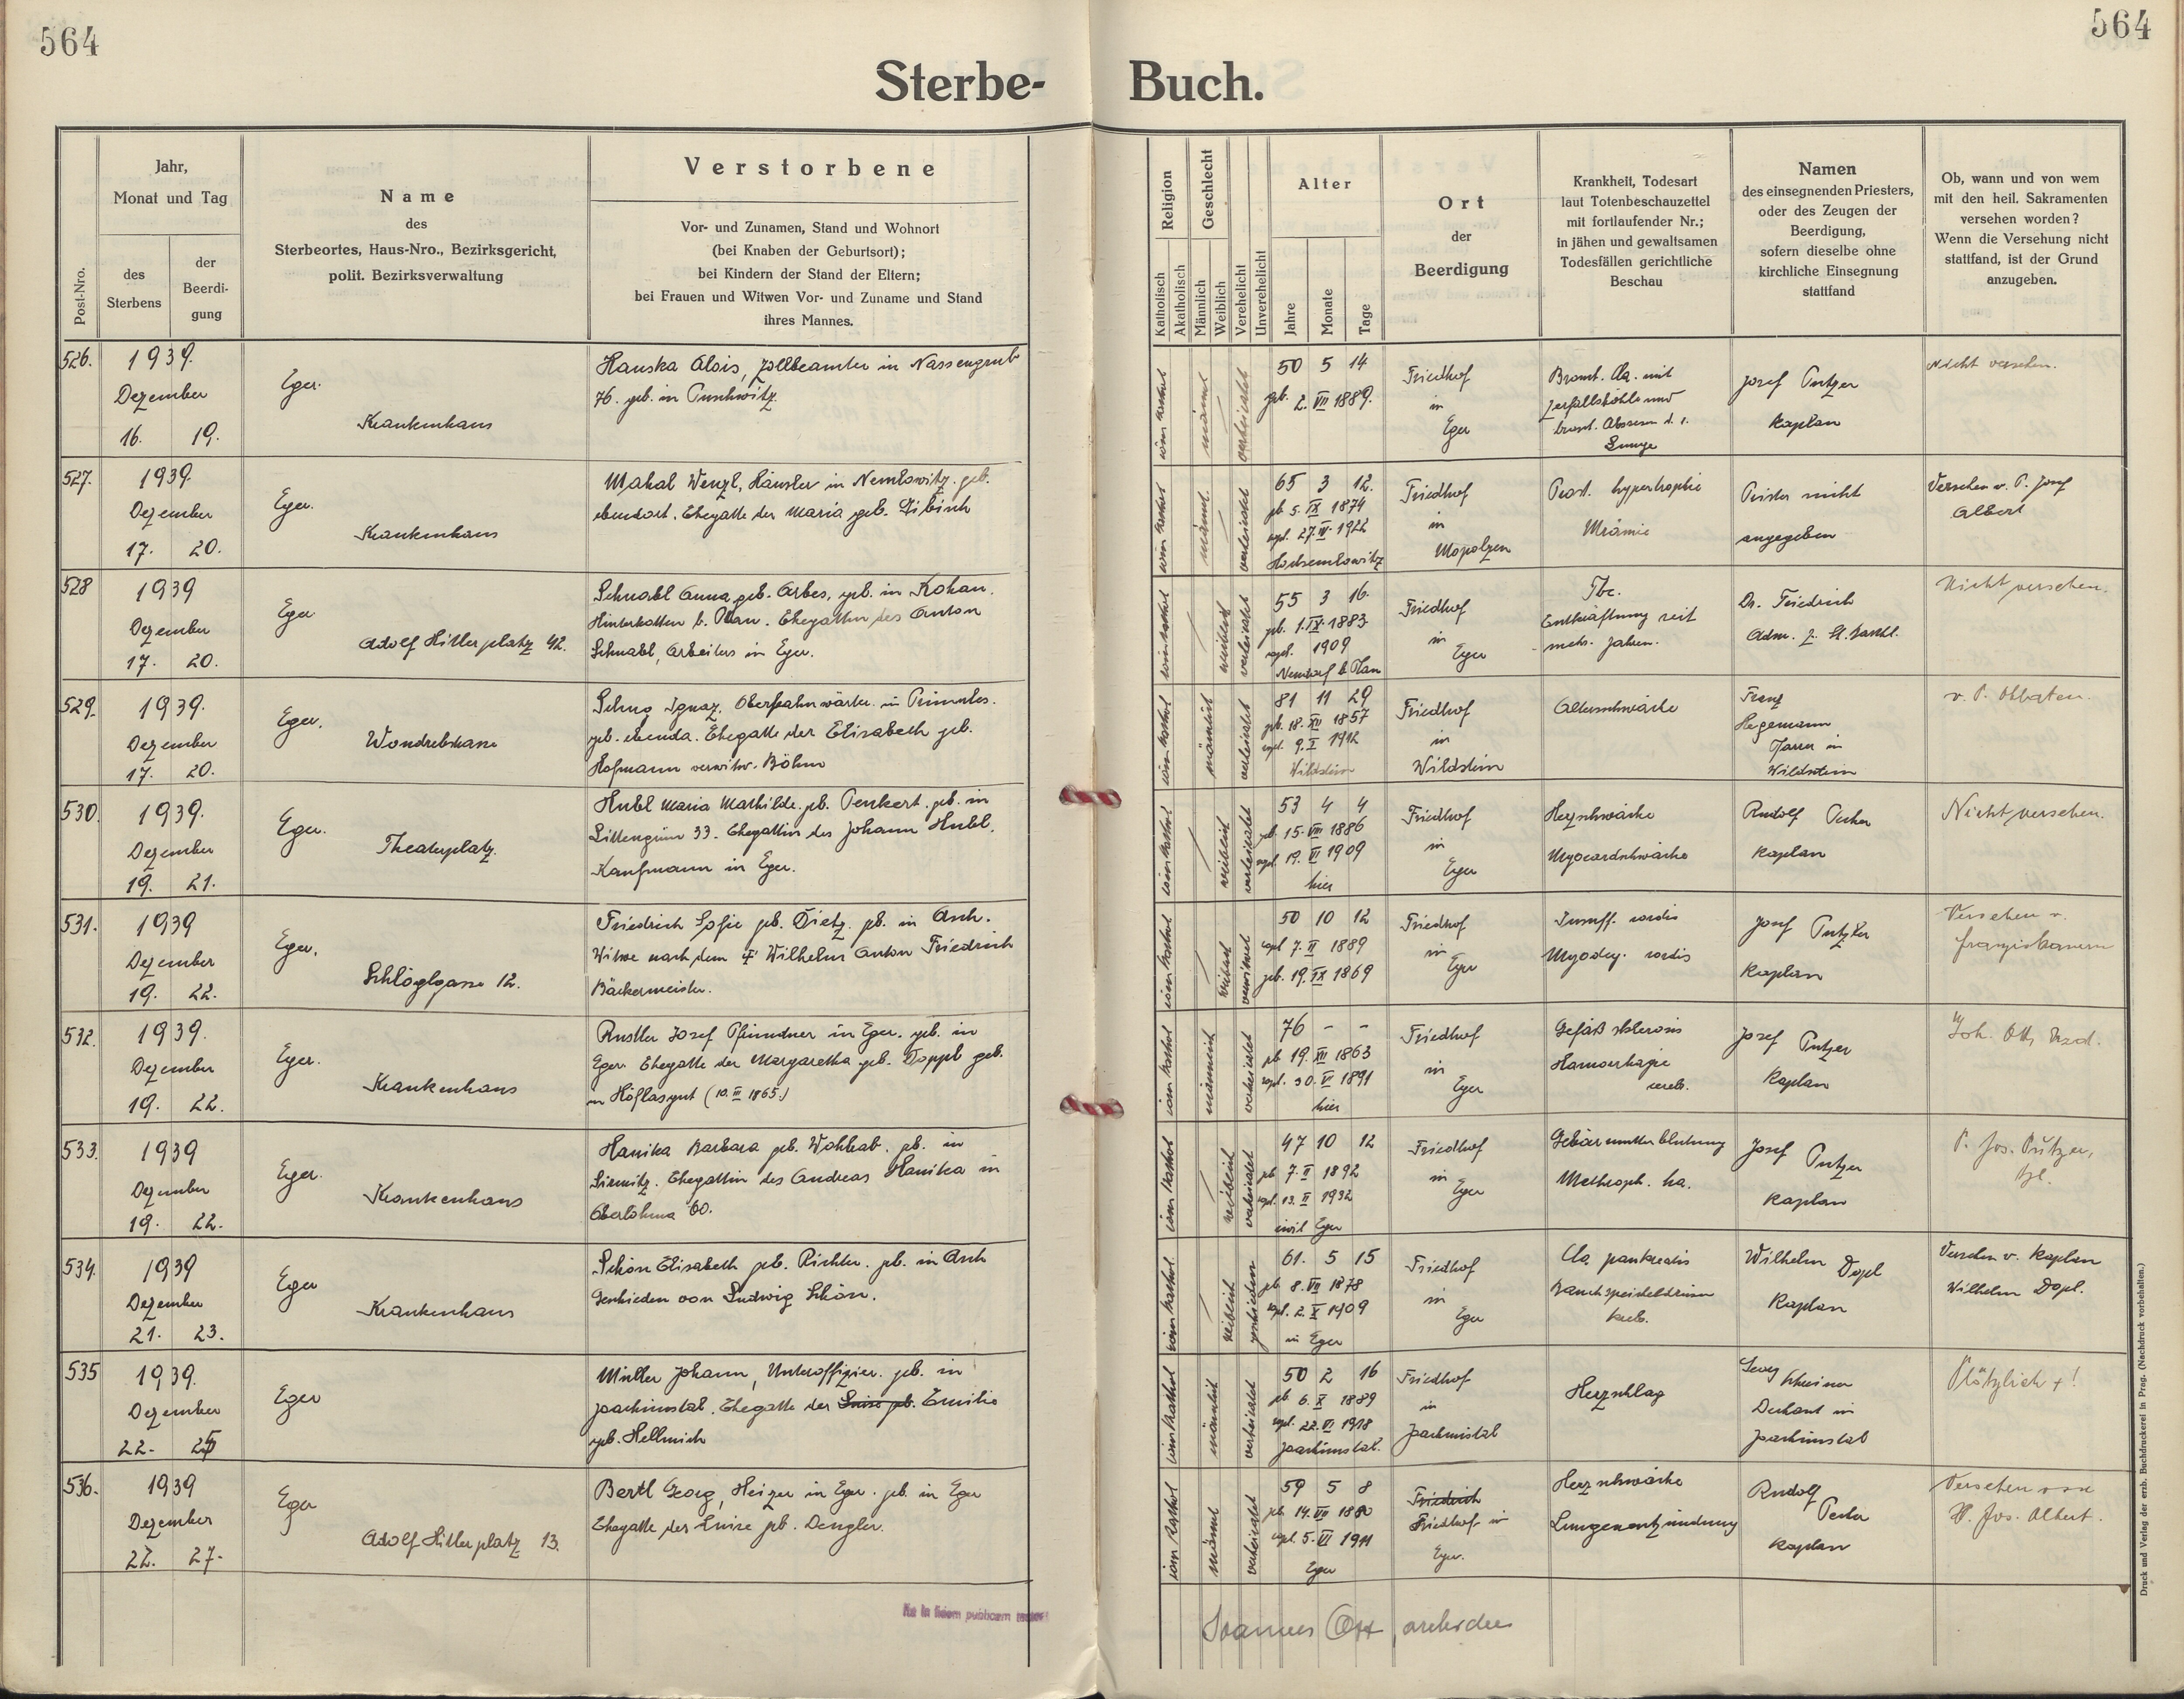 564
564
Sterbe- Buch.
Post-Nro.
Jahr,
Monat und Tag
des
Sterbens
der
Beerdi-
gung
Name
des
Sterbeortes, Haus-Nro., Bezirksgericht,
polit. Bezirksverwaltung
Verstorbene
Vor- und Zunamen, Stand und Wohnort
(bei Knaben der Geburtsort);
bei Kindern der Stand der Eltern;
bei Frauen und Witwen Vor- und Zuname und Stand
ihres Mannes.
Religion
Katholisch
Akatholisch
Geschlecht
Männlich
Weiblich
Verehelicht
Unverehelicht
Alter
Jahre
Monate
Tage
Ort
der
Beerdigung
Krankheit, Todesart
laut Totenbeschauzettel
mit fortlaufender Nr.;
in jähen und gewaltsamen
Todesfällen gerichtliche
Beschau
Namen
des einsegnenden Priesters,
oder des Zeugen der
Beerdigung,
sofern dieselbe ohne
kirchliche Einsegnung
stattfand
Ob, wann und von wem
mit den heil. Sakramenten
versehen worden?
Wenn die Versehung nicht
stattfand, ist der Grund
anzugeben.
526.
1939.
Dezember
16. 19.
Eger.
Krankenhaus
Hauska Alois, Zollbeamter in Nassengrub
76. geb. in Puschwitz.
röm kathol
männl
verheiratet
50 5 14
geb. 2. VII 1889.
Friedhof
in
Eger
Bronch. Ca. mit
Zerfallshöhle und
Lunge
Josef Putzer
Kaplan
Nicht versehen.
527.
1939.
Dezember
17. 20.
Eger.
Krankenhaus
Mahal Wenzl, Häusler in Nemlowitz. geb.
ebendort. Ehegatte der Maria geb. Zibisch
röm kathol
männl.
verheiratet
65 3 12.
geb 5. IX 1874
copl. 27. IV. 1922
Hochsemlowitz
Friedhof
in
Mogolzen
Prost. hypertrophie
Urämie
Priester nicht
angegeben
Versehen v. P. Josef
Albert
528
1939
Dezember
17. 20.
Eger
Adolf Hitlerplatz 42.
Schnabl Anna geb. Arbes, geb. in Kohan.
Hinterkotten b. Plan. Ehegattin des Anton
Schnabl, Arbeiters in Eger.
röm kathol
weiblich
verheiratet
55 3 16.
geb. 1. IX. 1883.
copl. 1909
Neudorf b. Plan
Friedhof
in
Eger
Tbc.
Entkräftung seit
mehr. Jahren.
Dr. Friedrich
Adm. z. St. Barthl.
Nicht versehen.
529.
1939.
Dezember
17. 20.
Eger.
Wondrebstrasse
Ignaz. Oberbahnwärter in
geb. ebenda. Ehegatte der Elisabeth geb.
Hofmann verwitw. Böhm
röm kathol
männlich
verheiratet
81 11 29
geb. 18. XII 1857
copl. 9. X 1912
Wildstein
Friedhof
in
Wildstein
Altersschwäche
Franz
Hegemann
Pfarrer in
Wildstein
530.
1939.
Dezember
19. 21.
Eger.
Theaterplatz.
Hubl Maria Mathilde. geb. Penkert. geb. in
Littengrün 33. Ehegattin des Johann Hubl,
Kaufmann in Eger.
röm kathol
weiblich
verheiratet
53 4 4
geb. 15. VIII 1886
copl. 19. VI 1909
hier
Friedhof
in
Eger
Herzschwäche
Myocardschwäche
Rudolf Pecher
Kaplan
Nicht versehen.
531.
1939
Dezember
19. 22.
Eger.
Schlöglgasse 12.
Friedrich Sofie geb. Dietz. geb. in Asch.
Witwe nach dem † Wilhelm Anton Friedrich
Bäckermeister.
röm kathol
weiblich
verwitwet
50 10 12
copl 7. II 1889
geb. 19. IX 1869
Friedhof
in
Eger
Insuff. cordis
Myodeg. cordis
Josef Putzer
Kaplan
Versehen v.
Franziskanern
532.
1939.
Dezember
19. 22.
Eger.
Krankenhaus
Rustler Josef Pfründner in Eger. geb. in
Eger Ehegatte der Margaretha geb. Doppl geb.
in Höflasgut (10. II 1865.)
röm kathol
männlich
verheiratet
76 - -
geb 19. XII 1863
copl. 30. V 1891
hier
Friedhof
in
Eger
Gefäß sklerosis
Hämorrhagie
cereb.
Josef Putzer
Kaplan
Joh. Ott, Erzd.
533.
1939
Dezember
19. 22.
Eger.
Krankenhaus
Hanika Barbara geb. Wohlrab. geb. in
Sirmitz. Ehegattin des Andreas Hanika in
Oberlohma 60.
röm kathol
weiblich
verheiratet
47 10 12
geb 7. II 1892
copl. 13. II 1932
civil Eger
Friedhof
in
Eger
Gebärmutterblutung
Josef Putzer
Kaplan
P. Jos. Putzer,
Kpl.
534.
1939
Dezember
21. 23.
Eger
Krankenhaus
Schön Elisabeth geb. Richter. geb. in Asch
Geschieden von Ludwig Schön.
röm kathol.
weiblich
geschieden
61. 5 15
geb. 8. VII 1878
copl. 2. X 1909
in Eger
Friedhof
in
Eger
Ca. pankreatis
Bauchspeicheldrüsen
kreb.
Wilhelm Dopl
Kaplan
Versehen v. Kaplan
Wilhelm Dopl.
535
1939.
Dezember
22. 25
Eger
Müller Johann, Unteroffizier. geb. in
Joachimstal. Ehegatte der Luise geb. Emilie
geb. Hellmich
röm kathol
männlich
verheiratet
50 2 16
geb 6. X 1889
copl. 22. VI 1918
Joachimstal.
Friedhof
in
Joachimstal
Herzschlag
Georg
Dechant in
Joachimstal
Plötzlich †!
536.
1939
Dezember
22. 27.
Eger
Adolf Hitlerplatz 13.
Bertl Georg, Heizer in Eger. geb. in Eger
Ehegatte der Luise geb. Dengler.
röm kathol
männl
verheiratet
59 5 8
geb. 14. VII 1880
copl. 5. VI 1911
Eger
Friedrich
Friedhof in
Eger.
Herzschwäche
Lungenentzündung
Rudolf
Pecher
Kaplan
Versehen von
P. Jos. Albert.
Joannes Ott, archidec
Druck und Verlag der erzb. Buchdruckerei in Prag. (Nachdruck vorbehalten.)